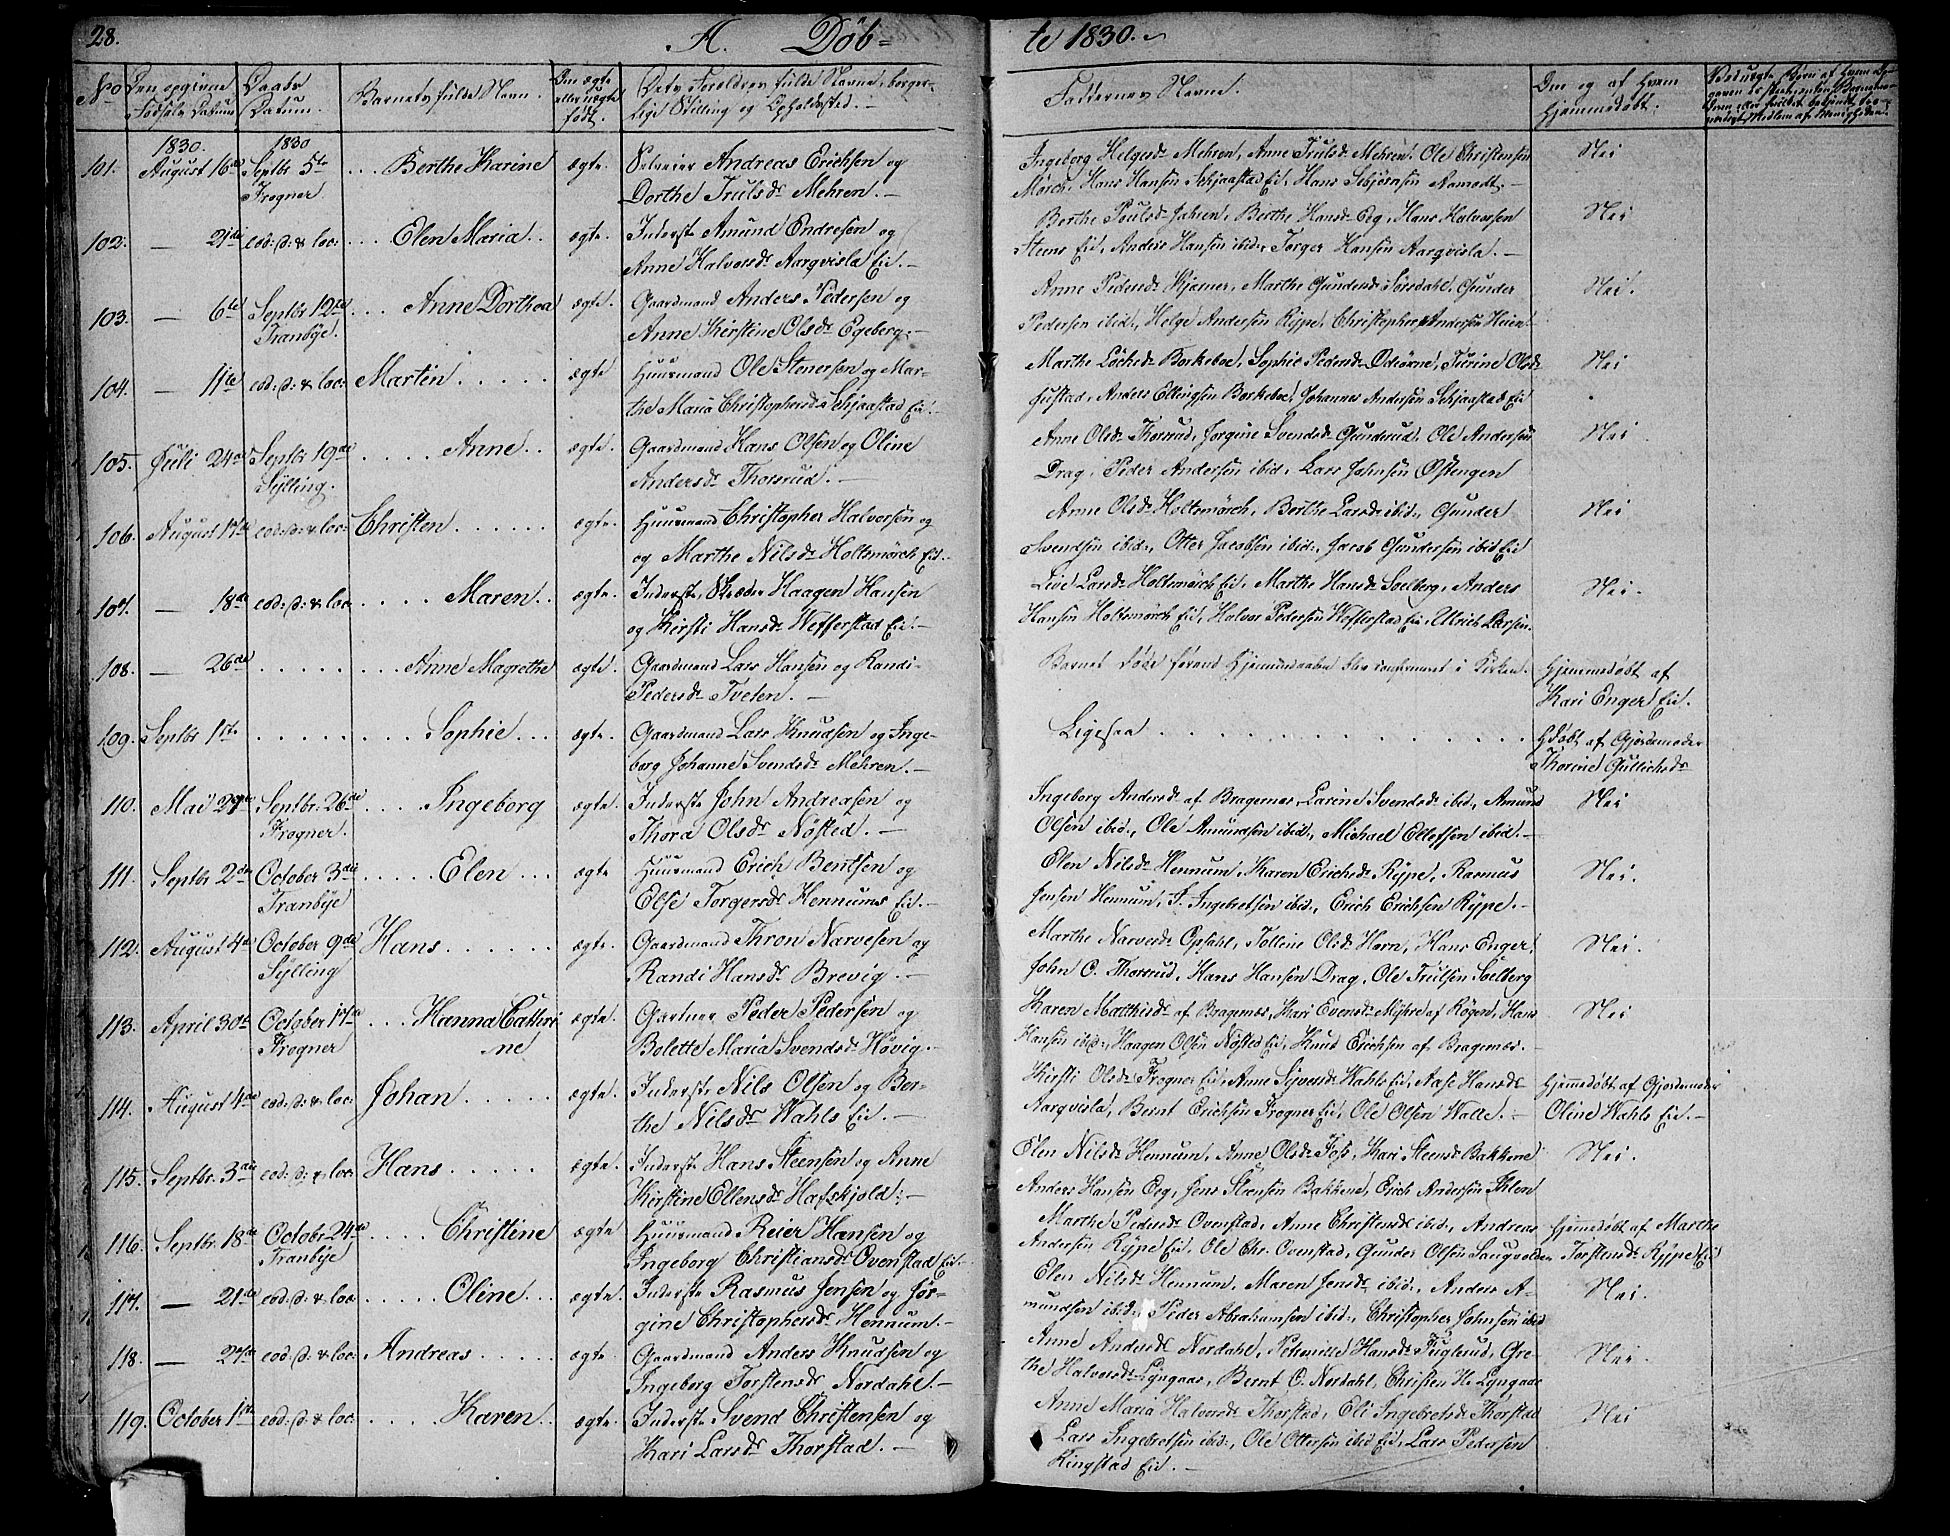 28. A. Døb= te 1830.
No Den opgivne Daabs Barnets fulde Navn. Om ægte Dets Forældres fulde Navne, borger- Faddernes Navne. Om og af hvem
Fødsels Datum Datum eller uægte lige Stilling og Opholdssted. Hjemmedøbt.
født.
1830. 1830
101. August 16de Septbr 5te ... Berthe Karine ægte. Andreas Erichsen og
Frogner Dorthe Trulsdr Mehren. —
Ingeborg Helgesdr Mehren, Anne Trulsdr Mehren, Ole Christensen Nei
Mørch, Hans Hansen Schjaastad Eie, Hans
102. — 21de eod: d: & loc: ... Elen Maria .. ægte. Inderst Amund Endresen og
Anne Halvorsdr Aarqvisla Eie. —
Berthe Poulsdr Jahren, Berthe Hansdr Eeg, Hans Halvorsen Nei
Steens Eie, Anders Hansen ibid., Torger Hansen Aarqvisla. —
103. — 6te Septbr 12te ... Anne Dorthea ægte. Gaardmand Anders Pedersen og
Tranbye. Anne Kirstine Olsdr Egeberg. —
Anne Pedersdr Kjæner, Marthe Gundersdr Sørsdahl, Gunder Nei.
Pedersen ibid., Helge Andersen Rype, Christopher Andersen Heien.
104. — 11te eod: d: & loc: Martin ..... ægte Huusmand Ole Stenersen og Mar-
the Maria Christophersdr Schjaastad Eie. —
Marthe Borkeboe, Sophie Pedersdr Turine Olsdr Nei
Justad, Anders Ellingsen Borkeboe, Johannes Andersen Schjaastad Eie
105. Juli 24de Septbr 19de .... Anne .. ægte. Gaardmand Hans Olsen og Oline
Sylling. Andersdr Thorsrud. —
Anne Olsdr Thorsrud, Jørgine Svendsdr Gunderud, Ole Andersen Nei
Drag, Peder Andersen ibid., Lars Johnsen Østengen
106. August 17de eod: d: & loc: Christen ..... ægte. Huusmand Christopher Halvorsen og
og Marthe Nilsdr Holtsmørch Eie. —
Anne Olsdr Holtsmørch, Berthe Larsdr ibid., Gunder Nei
Svendsen ibid., Otter Jacobsen ibid., Jacob Gundersen ibid Eie
107. — 18de eod: d: & loc: .... Maren .. ægte. Inderst, Skrædr Haagen Hansen
og Kirsti Hansdr Wefferstad Eie. —
Live Larsdr Holtsmørch Eie, Marthe Hansdr Soelberg, Anders Nei.
Hansen Holtsmørch Eie, Halvor Pedersen Wefferstad Eie, Ulrich Larsen.
108. — 26de ........ Anne Magrethe ægte. Gaardmand Lars Hansen og Randi
Pedersdr Tveten. —
Barnet døde førend Hjemmedaaben blev confirmeret i Kirken. Hjemmedøbt af
Kari Enger Eie.
109. Septbr 1ste ........ Sophie ... ægte. Gaardmand Lars Knudsen og Inge-
borg Johanne Svendsdr Mehren. —
Ligesaa ............ Hdøbt af Gjordemoder
Thorine Gullichsdr
110. Mai 27de Septbr. 26de .... Ingeborg ægte. Inderste John Andreasen og
Frogner. Thora Olsdr Nøsted. —
Ingeborg Andersdr af Bragernæs, Larine Svendsdr ibid., Amund Nei
Olsen ibid., Ole Amundsen ibid., Michael Ellefsen ibid. —
111. Septbr 2den October 3die ..... Elen ... ægte Huusmand Erich Bentsen og
Tranbye Else Torgersdr Hennums Eie. —
Elen Nilsdr Hennum, Karen Erichsdr Rype, Rasmus Nei.
Jensen Hennum, J. Ingebretsen ibid., Erich Erichsen Rype. —
112. August 4de October 9de Hans ...... ægte. Gaardmand Thron Narvesen og
Sylling Randi Hansdr Brevig. —
Marthe Narvesdr Opsahl, Tolline Olsdr Horn, Hans Enger, Nei.
John C. Thorsrud, Hans Hansen Drag, Ole Trulsen Soelberg
113. April 30te October 17de ... Hanna Cathri ægte. Gartner Peder Pedersen og
Frogner ne Bolette Maria Svendsdr Høvig. —
Karen Matthisdr af Bragernæs, Kari Evensdr Myhre af Røgen, Hans Nei
Hansen ibid., Haagen Olsen Nøsted Eie, Knud Erichsen af Bragernæs. —
114. August 4de eod: d: & loc: Johan ..... ægte. Inderst Nils Olsen og Ber-
the Nilsdr Wahls Eie. —
Kirsti Olsdr Frogner Eie, Anne Syversdr Wahls Eie, Aase Hansdr Hjemmedøbt af Gjordemoder
Aarqvisla, Bernt Erichsen Frogner Eie, Ole Olsen Walle. — Oline Wahls Eie. —
115. Septbr. 3die eod: d: & loc: Hans ..... ægte. Inderst Hans Steensen og Anne
Kirstine Ellensdr Hafskjold. —
Elen Nilsdr Hennum, Anne Olsdr Foss, Kari Steensdr Bakkene Nei.
Anders Hansen Eeg, Jens Steensen Bakkene, Erich Andersen Ihlen
116. Septbr. 18de October 24de .... Christine ægte. Huusmand Reier Hansen og
Tranbye Ingeborg Christiansdr Ovenstad Eie. —
Marthe Pedersdr Ovenstad, Anne Christensdr ibid., Andreas Hjemmedøbt af Marthe
Andersen Rype Eie, Ole Chr. Ovenstad, Gunder Olsen Torstensdr Rype Eie
117. — 21de eod: d: & loc: ..... Oline ... ægte. Inderste Rasmus Jensen og Jør-
gine Christophersdr Hennum. —
Elen Nilsdr Hennum, Maren Jensdr ibid., Anders A- Nei.
mundsen ibid., Peder Abrahamsen ibid., Christopher Johnsen ibid
118. — 27de eod: d: & loc: Andreas ..... ægte. Gaardmand Anders Knudsen og
Ingeborg Torstensdr Nordahl. —
Anne Andersdr Nordahl, Petronille Hansdr Fuglerud, Gre- Nei.
the Halvorsdr Lyngaas, Bernt O. Nordahl, Christen H. Lyngaas
119. October 1ste eod: d: & loc: .... Karen .. ægte. Inderste Svend Christensen og
Kari Larsdr Thorstad. —
Anne Maria Halvorsdr Thorstad, Eli Ingebretsdr Thorstad Nei
Lars Ingebretsen ibid., Ole Ottersen ibid Eie, Lars Pedersen
Kingstad Eie. —